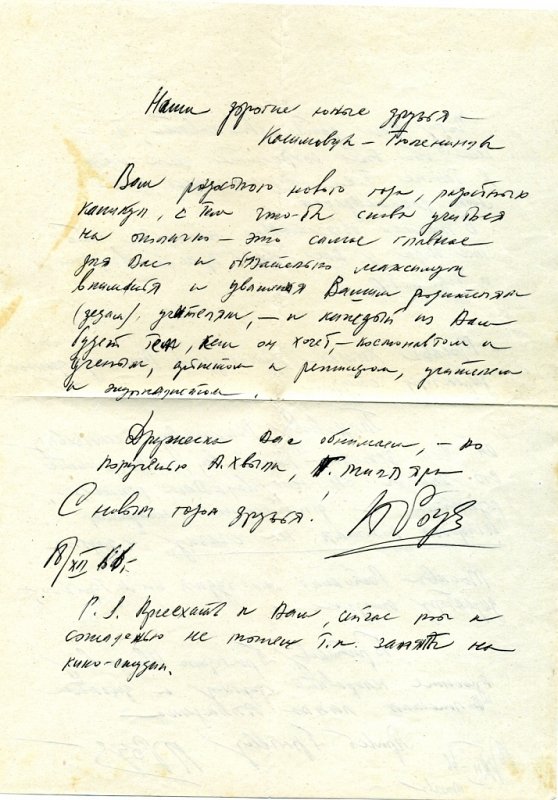 Наши дорогие юные друзья –
Вам радостного нового года, радостных
каникул, с тем что-бы снова учиться
на отлично – это самое главное
для Вас и обязательно максимум
внимания и уважения Вашим родителям
(дедам), учителям, – и каждый из Вас
будет тем, кем он хочет, – космонавтом и
ученым, артистом и учителем
и журналистом.
Дружески Вас обнимаем, – по
поручению А. Хвыля, Г. Милляра
С новым годом друзья!
18/XII 66 г.
Приехать к Вам, сейчас мы к
сожалению не можем т.к. заняты на
кино-студии.